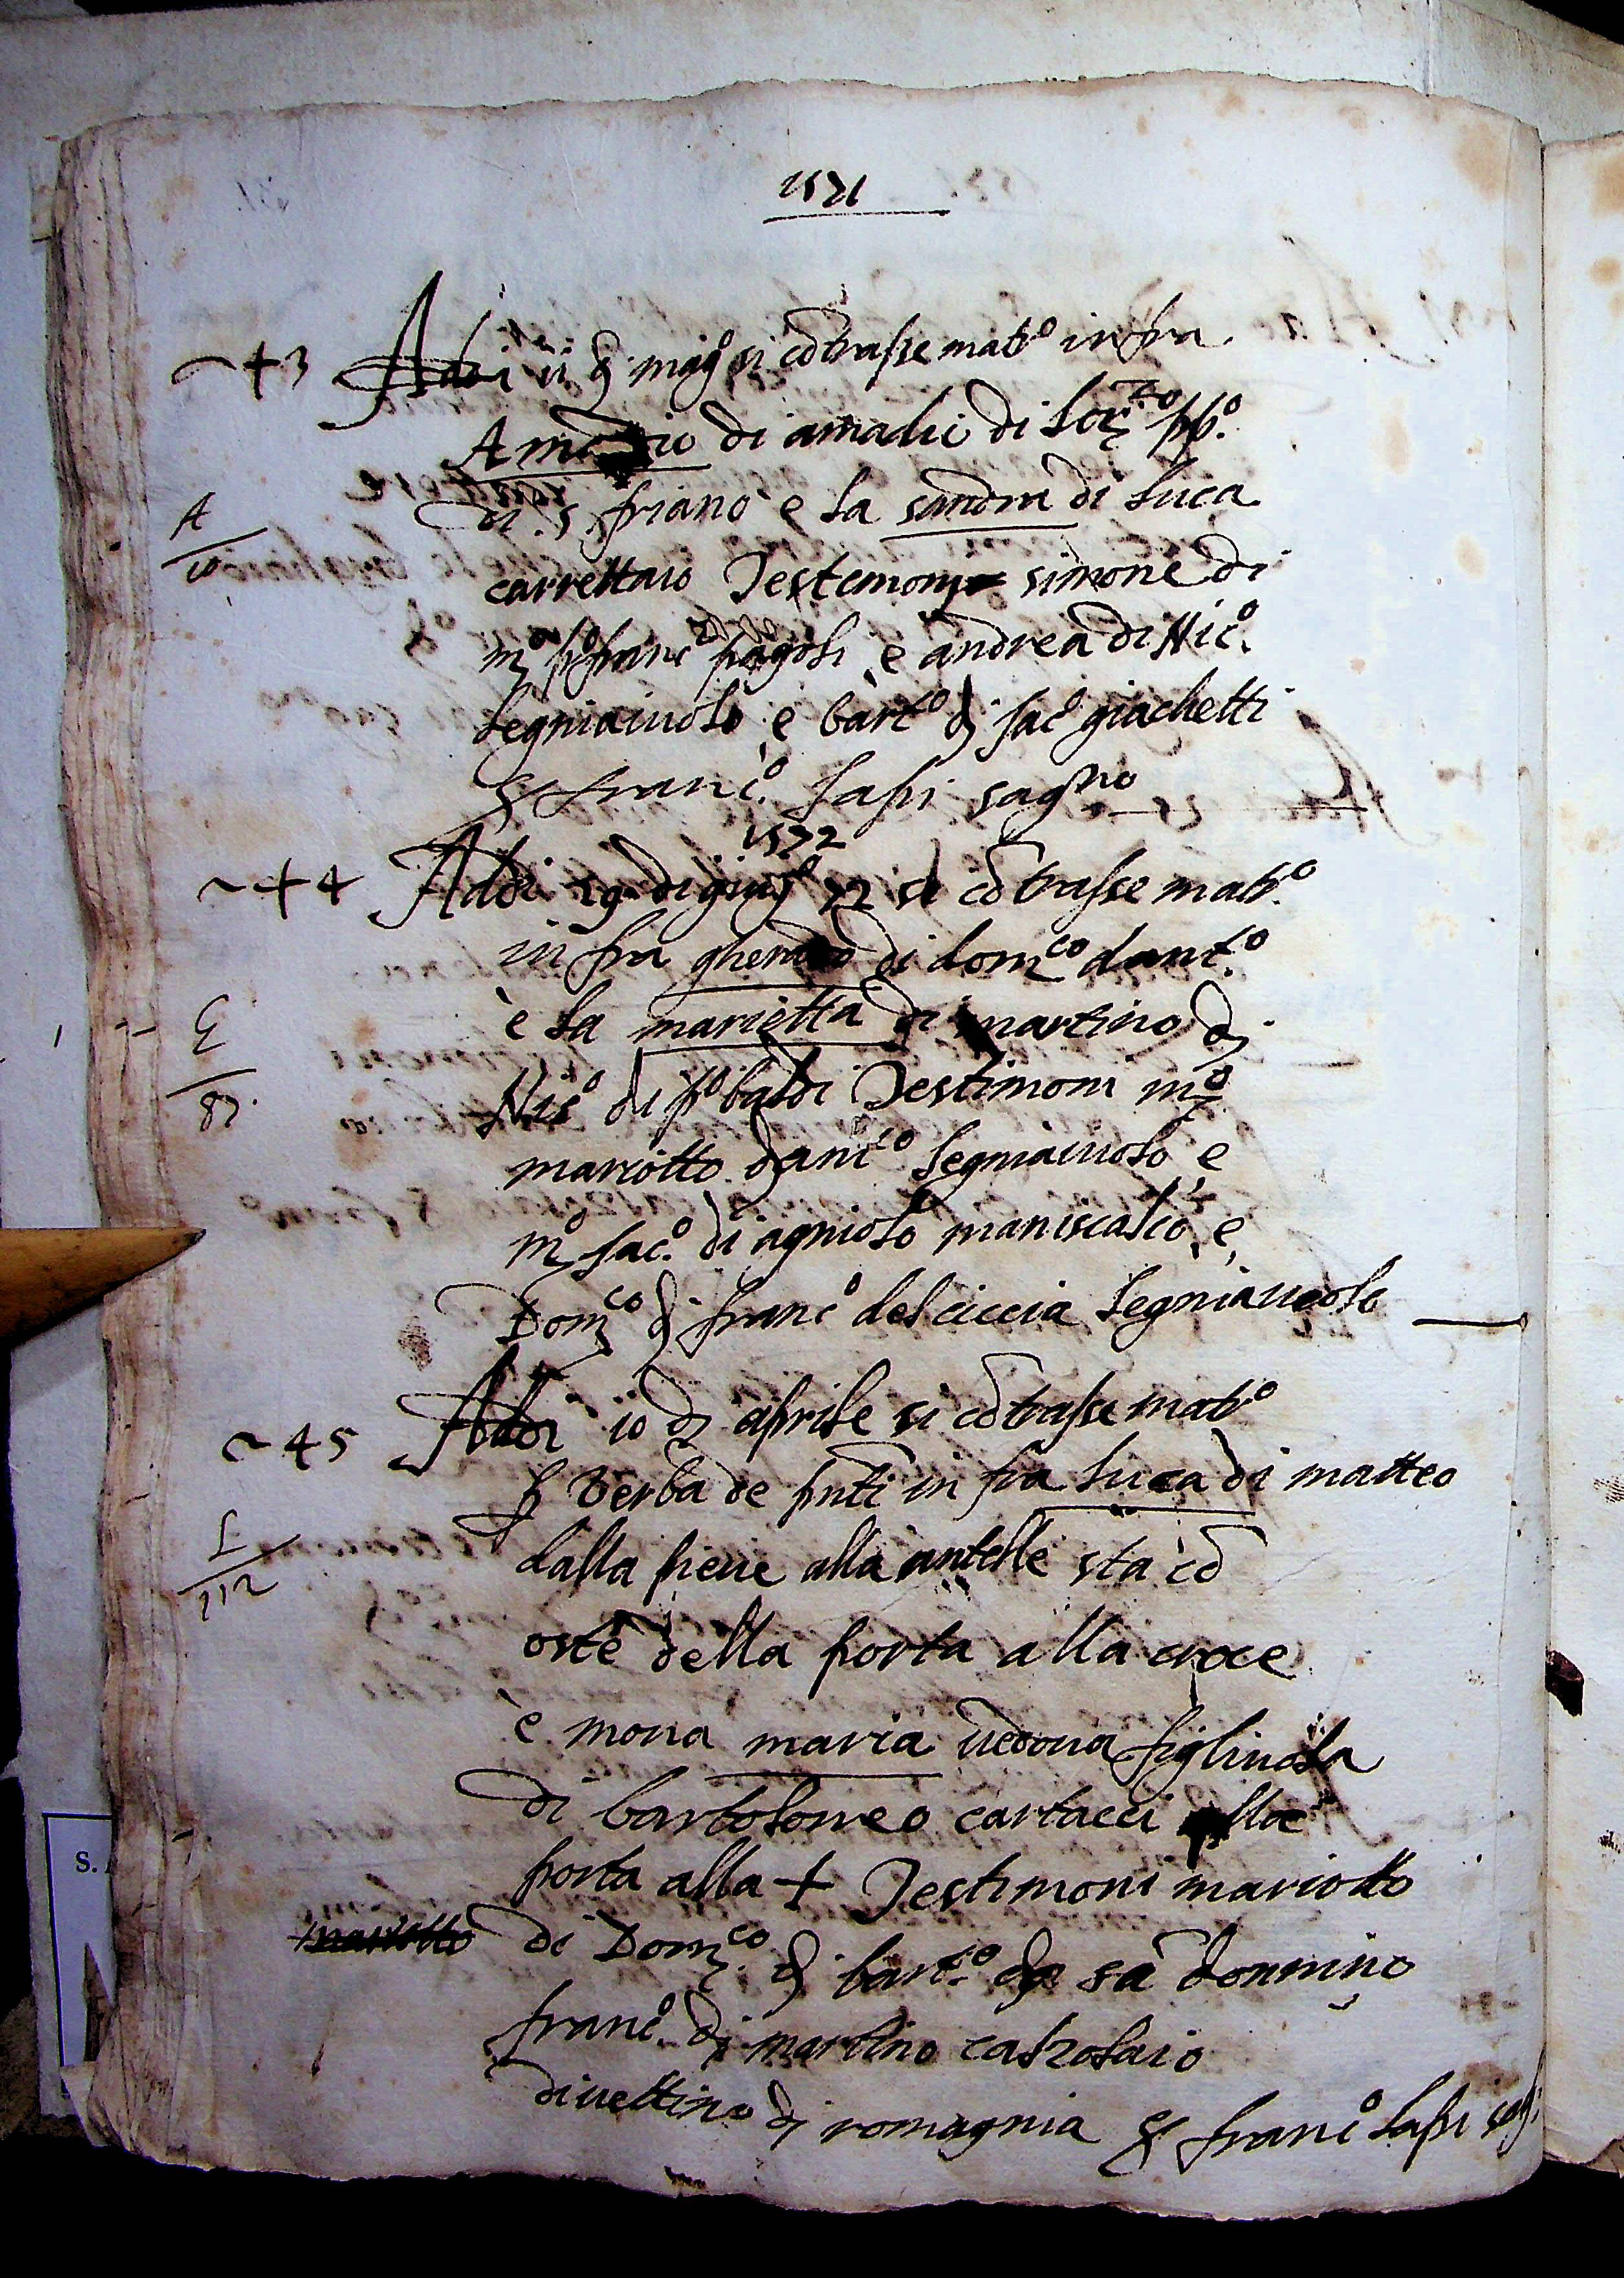 1571
~43 Addi 11 di magº si cōtrasse matrº infra
Amadio di amadi di Lorzo ppº
di S. friano e la sandra di luca
carrettaio Testimoni simone di
mº pº franco pagoli e andrea di Nicº
legniaiuolo e bartº di Jacº giachetti
francº lapi sagno
A
10
1572
~44 Addi 19 di giugº 72 si cōtrasse matrº
in fra gherardo di domco dantº
è la marietta di martino di
Nicº di pº baldi Testimoni mº
mariotto danico legniaiuolo e
mº Jacº di agniolo maniscalco e
Domco di francº del ciccia legniaiuolo
G
87.
~45 Addi 10 di aprile si cōtrasse matrº
p verba de pnti in fra luca di matteo
dalla pieue alla antelle sta cō
oste della porta alla croce
è mona maria uedoua figliuola
di bartolomeo cartacci alla
porta alla + Testimoni mariotto
mariotto di Domco di bartº da sā donnino
francº di martino calzolaio
diuettino di romagnia francº lapi
L
112
S.